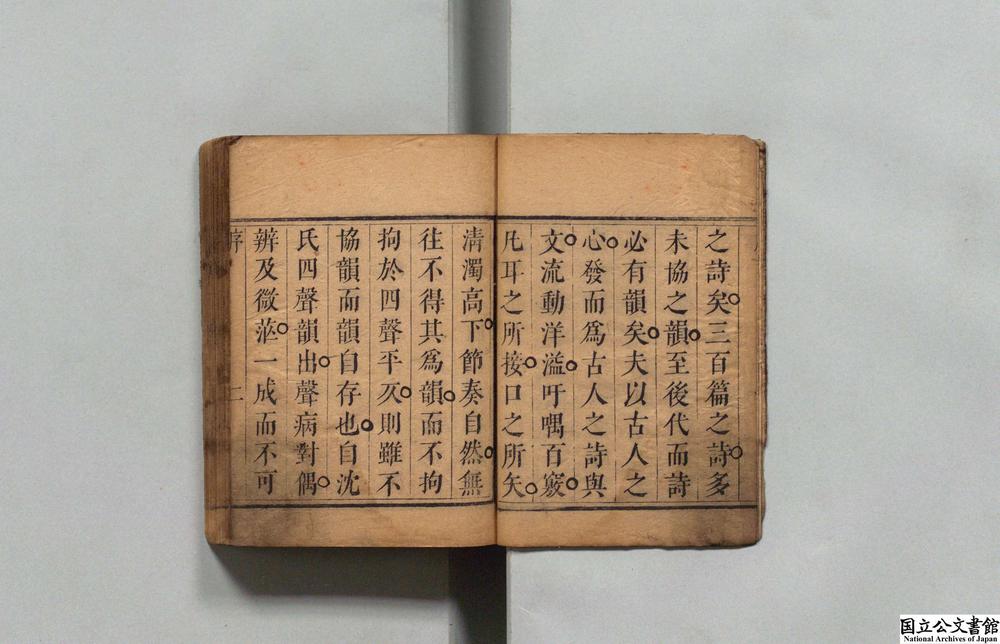 之詩矣。三百篇之詩。多
未協之韻。至後代而詩
必有韻矣。夫以古人之
心。發而為古人之詩與
文。流動洋溢。吁喁百竅。
凡耳之所接。口之所矢。
清濁高下。節奏自然。無
徃不得其為韻。而不拘
拘於四聲平仄。則雖不
協韻而韻自存也。自沈
氏四聲韻出。聲病對偶。
辨及微茫。一成而不可
序
二
国立公文書館
National Archives of Japan